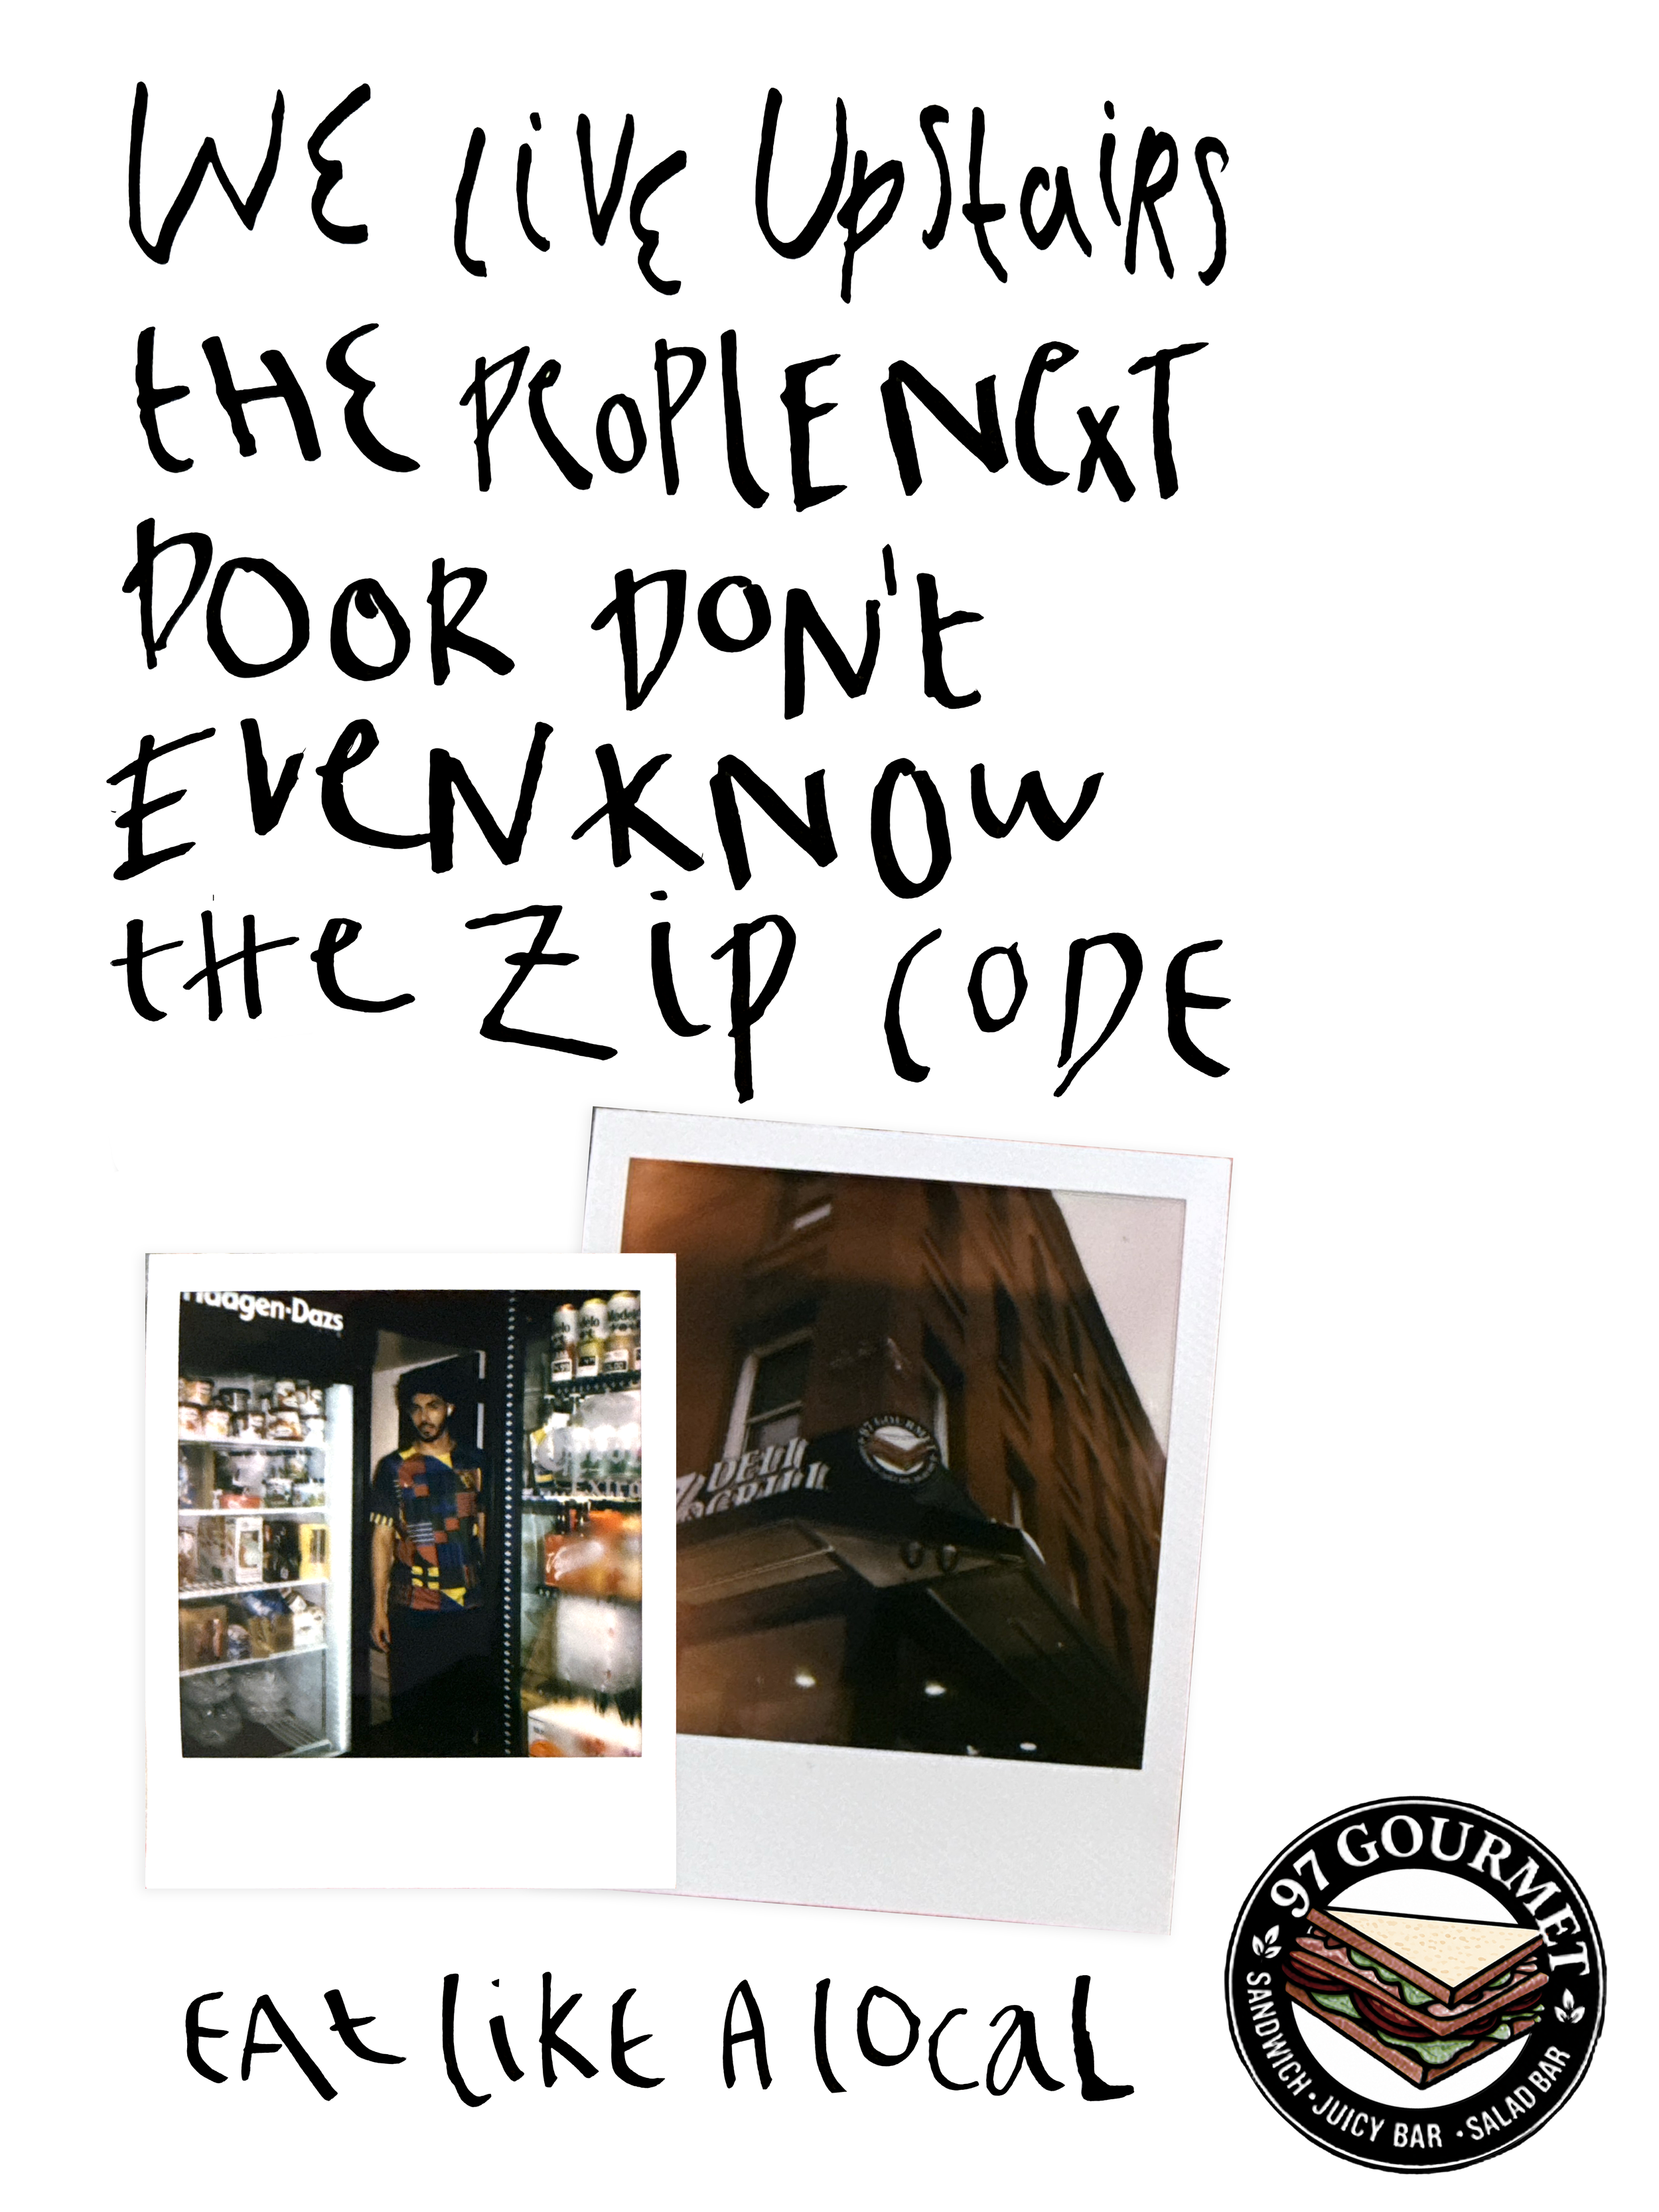 WE live Upstairs
tHE PeoPlE NexT
DOOR DON't
EveN KNOw
tHe Zip CODE
Häagen-Dazs
DELI
97 GOURMET
EAt likE A local
97 GOURMET
SANDWICH · JUICY BAR · SALAD BAR